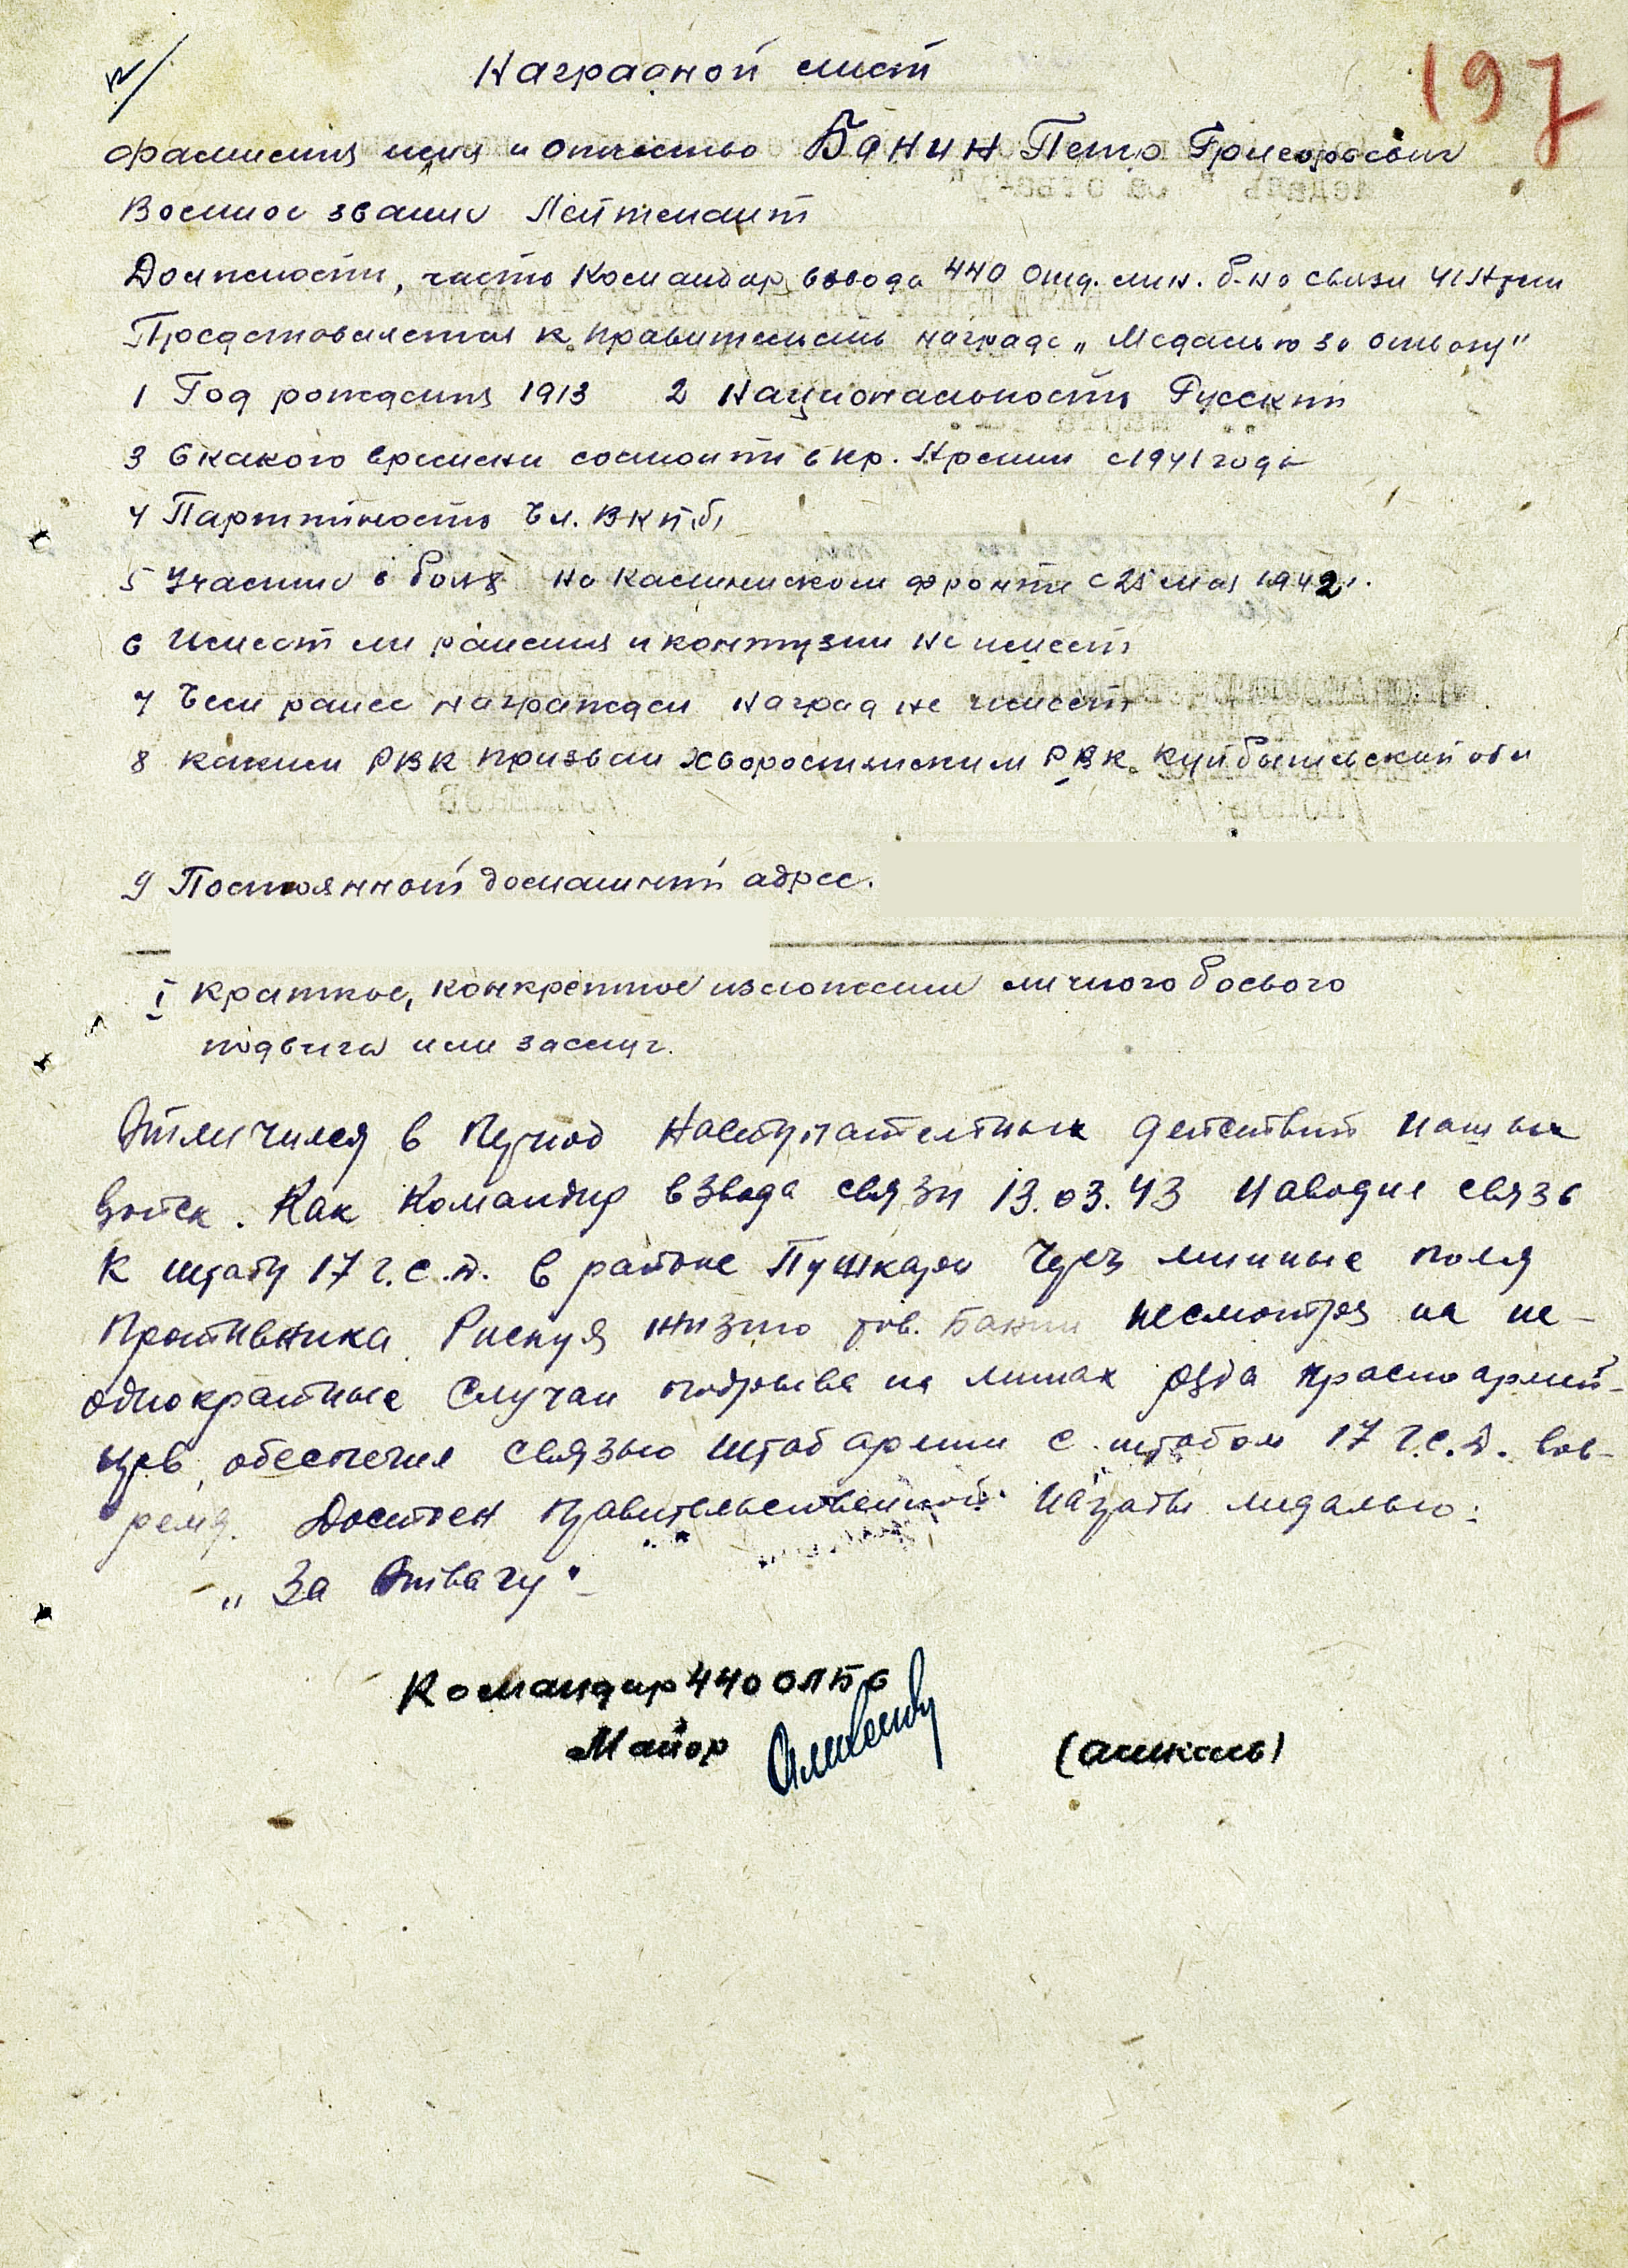 197
Наградной лист
Фамилия имя и отчество Банин Петр Григорьевич
Военное звание Лейтенант
Должность, часть Командир взвода 440 отд. лин. б-на связи 41 Арм
Представляется к правительств награде „Медалью за отвагу"
1 Год рождения 1913 2 Национальность Русский
3 С какого времени состоит в кр. Армии с 1941 года
4 Партийность Чл. ВКП(б)
5 Участие в боях на Калининском фронте с 25 мая 1942 г.
6 Имеет ли ранения и контузии не имеет
7 Чем ранее награжден наград не имеет
8 Каким РВК призван Хворостянским РВК Куйбышевский обл
9 Постоянный домашний адрес.
I Краткое, конкретное изложение личного боевого
подвига или заслуг.
Отличился в период наступательных действий наших
войск. Как командир взвода связи 13.03.43 наводил связь
к штабу 17 г.с.д. в районе Пушкари через минные поля
противника. Рискуя жизнью тов. Банин несмотря на не-
однократные случаи подрыва на минах ряда красноармей-
цев, обеспечил связью штаб армии с штабом 17 г.с.д. вов-
ремя. Достоин правительственной награды медалью:
„За Отвагу"
Командир 440 ОЛБС
Майор